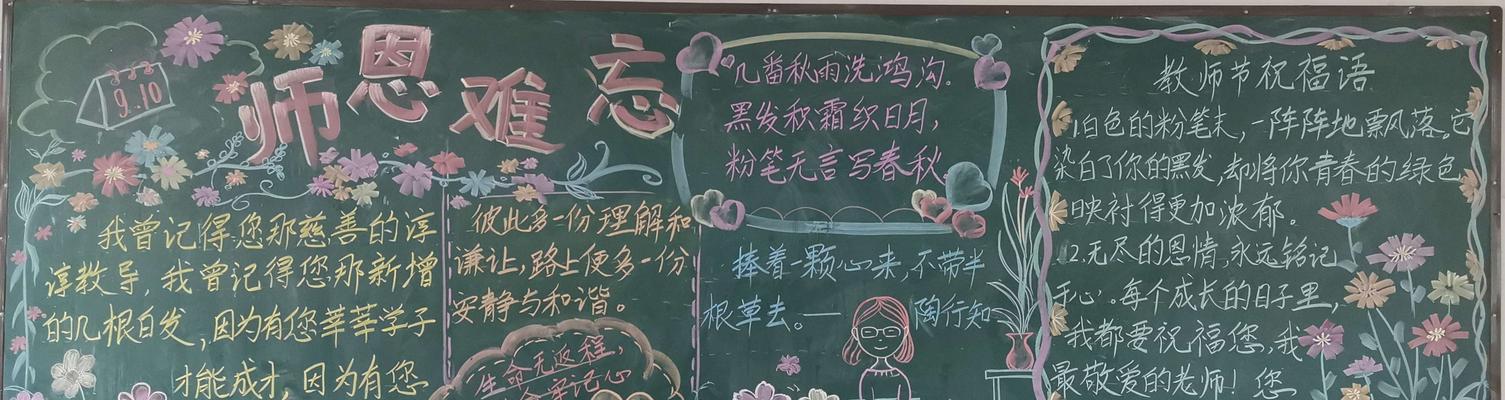 9.10
师恩难忘
我曾记得您那慈善的淳
淳教导,我曾记得您那新增
的几根白发,因为有您莘莘学子
才能成才,因为有您
彼此多一份理解和
谦让,路上便多一份
安静与和谐。
生命无返程,
牢记心
几番秋雨洗鸿沟.
黑发积霜织日月,
粉笔无言写春秋.
捧着一颗心来,不带半
根草去。—陶行知
教师节祝福语
1.白色的粉笔末,一阵阵地飘风落。它
染白了你的黑发,却将你青春的绿色
映衬得更加浓郁。
2.无尽的恩情,永远铭记
于心。每个成长的日子里,
我都要祝福您,我
最敬爱的老师!您